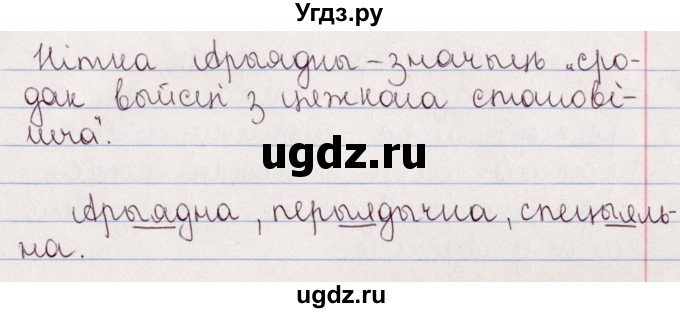 Угдз.ру
Нітка Арыядны – значыць „сро-
дак выйсці з цяжкага станові-
шча".
ugdz.ru
Арыядна, перыядычна, спецыяль-
на.
ugdz.ru